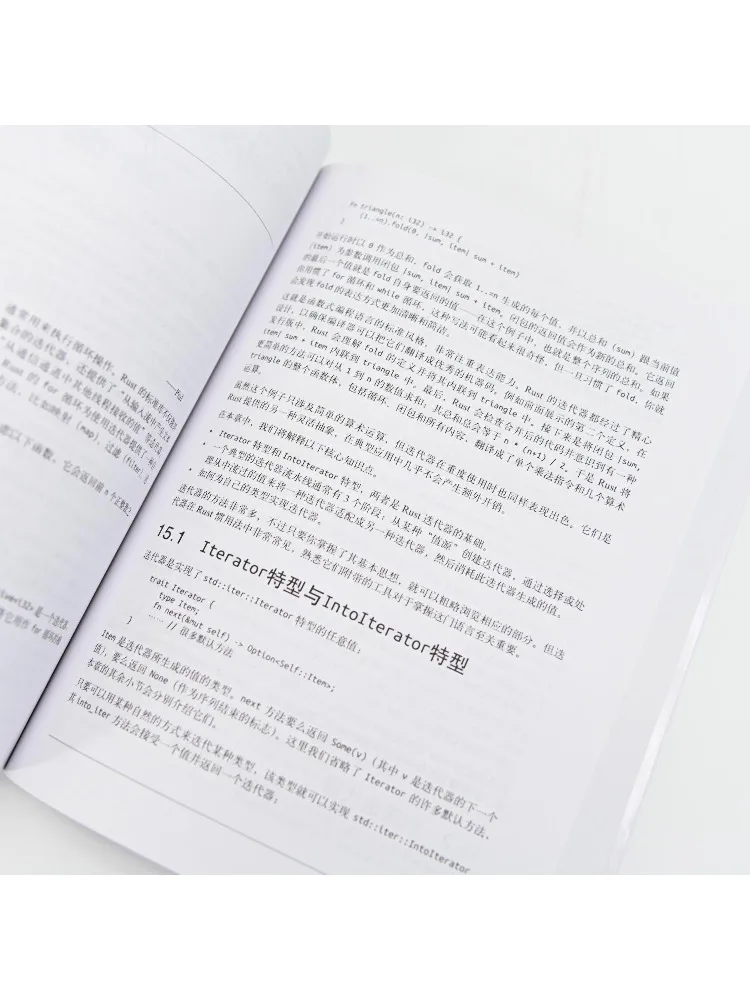 ——约
通常用来执行循环操作。Rust 的标准库不仅提
集合的迭代器，还提供了“从输入流中产生文
“从通信通道中其他线程接收的值”等迭代
Rust 的 for 循环为使用迭代器提供了一种自
方法，比如映射（map）、过滤（filter）、
虑以下函数，它会返回前 n 个正整数之
fn triangle(n: i32) -> i32 {
(1..=n).fold(0, |sum, item| sum + item)
}
开始运行时以 0 作为总和，fold 会获取 1..=n 生成的每个值，并以总和（sum）跟当前值
（item）为参数调用闭包 |sum, item| sum + item。闭包的返回值会作为新的总和。它返回
的最后一个值就是 fold 自身要返回的值——在这个例子中，也就是整个序列的总和。如果
你用惯了 for 循环和 while 循环，这种写法可能看起来很奇怪，但一旦习惯了 fold，你就
会发现 fold 的表达方式更加清晰和简洁。
这就是函数式编程语言的标准风格，非常注重表达能力。Rust 的迭代器都经过了精心
设计，以确保编译器可以把它们翻译成优秀的机器码。例如前面展示的第二个定义，在
发行版中，Rust 会理解 fold 的定义并将其内联到 triangle 中。接下来是将闭包 |sum,
item| sum + item 内联到 triangle 中。最后，Rust 会检查合并后的代码并意识到有一种
更简单的方法可以对从 1 到 n 的数值求和：其总和总会等于 n * (n+1) / 2。于是 Rust 将
triangle 的整个函数体，包括循环、闭包和所有内容，翻译成了单个乘法指令和几个算术
运算。
虽然这个例子只涉及简单的算术运算，但迭代器在重度使用时也同样表现出色。它们是
Rust 提供的另一种灵活抽象，在典型应用中几乎不会产生额外开销。
在本章中，我们将解释以下核心知识点。
• Iterator 特型和 IntoIterator 特型，两者是 Rust 迭代器的基础。
• 一个典型的迭代器流水线通常有 3 个阶段：从某种“值源”创建迭代器，通过选择或处
理从中流过的值来将一种迭代器适配成另一种迭代器，然后消耗此迭代器生成的值。
• 如何为自己的类型实现迭代器。
迭代器的方法非常多，不过只要你掌握了其基本思想，就可以粗略浏览相应的部分。但迭
代器在 Rust 惯用法中非常常见，熟悉它们附带的工具对于掌握这门语言至关重要。
15.1 Iterator特型与IntoIterator特型
迭代器是实现了 std::iter::Iterator 特型的任意值：
trait Iterator {
type Item;
fn next(&mut self) -> Option<Self::Item>;
…… // 很多默认方法
}
Item 是迭代器所生成的值的类型。next 方法要么返回 Some(v)（其中 v 是迭代器的下一个
值），要么返回 None（作为序列结束的标志）。这里我们省略了 Iterator 的许多默认方法，
本章的其余小节会分别介绍它们。
只要可以用某种自然的方式来迭代某种类型，该类型就可以实现 std::iter::IntoIterator
其 into_iter 方法会接受一个值并返回一个迭代器：